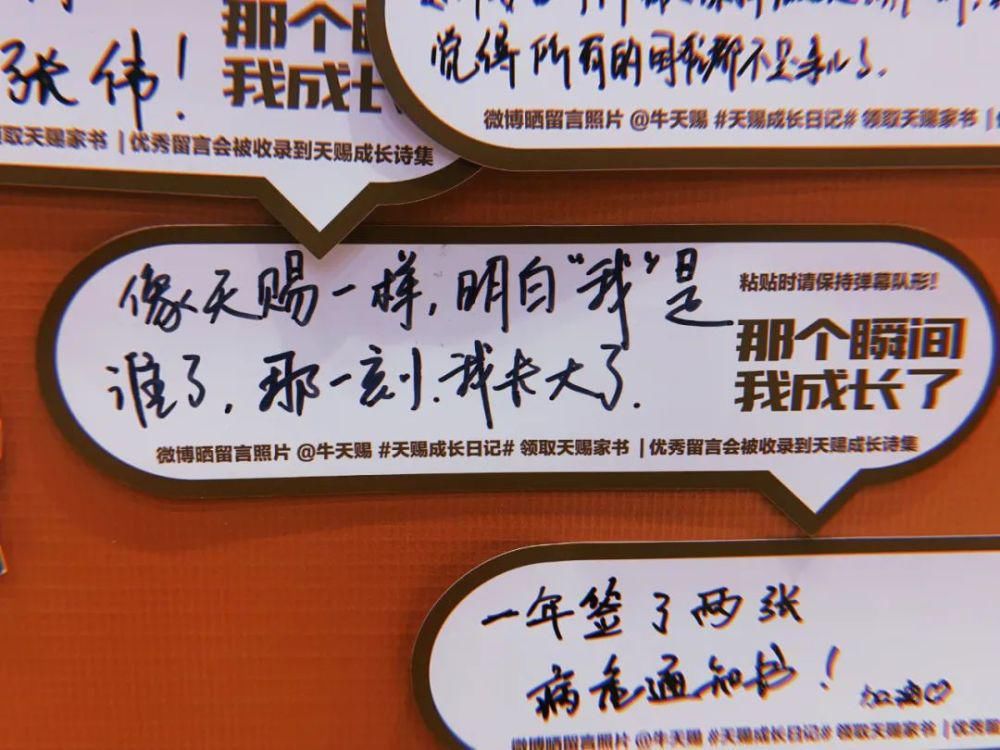 张伟！
那个
我成长
领取天赐家书 | 优秀留言会被收录到天赐成长诗集
觉得所有的困难都不是事儿了.
微博晒留言照片 @牛天赐 #天赐成长日记# 领取天赐家书 |
像天赐一样,明白"我"是
谁了,那一刻.我长大了.
粘贴时请保持弹幕队形！
那个瞬间
我成长了
微博晒留言照片 @牛天赐 #天赐成长日记# 领取天赐家书 | 优秀留言会被收录到天赐成长诗集
一年签了两张
病危通知书！
加油♡
微博晒留言照片 @牛天赐 #天赐成长日记# 领取天赐家书 | 优秀